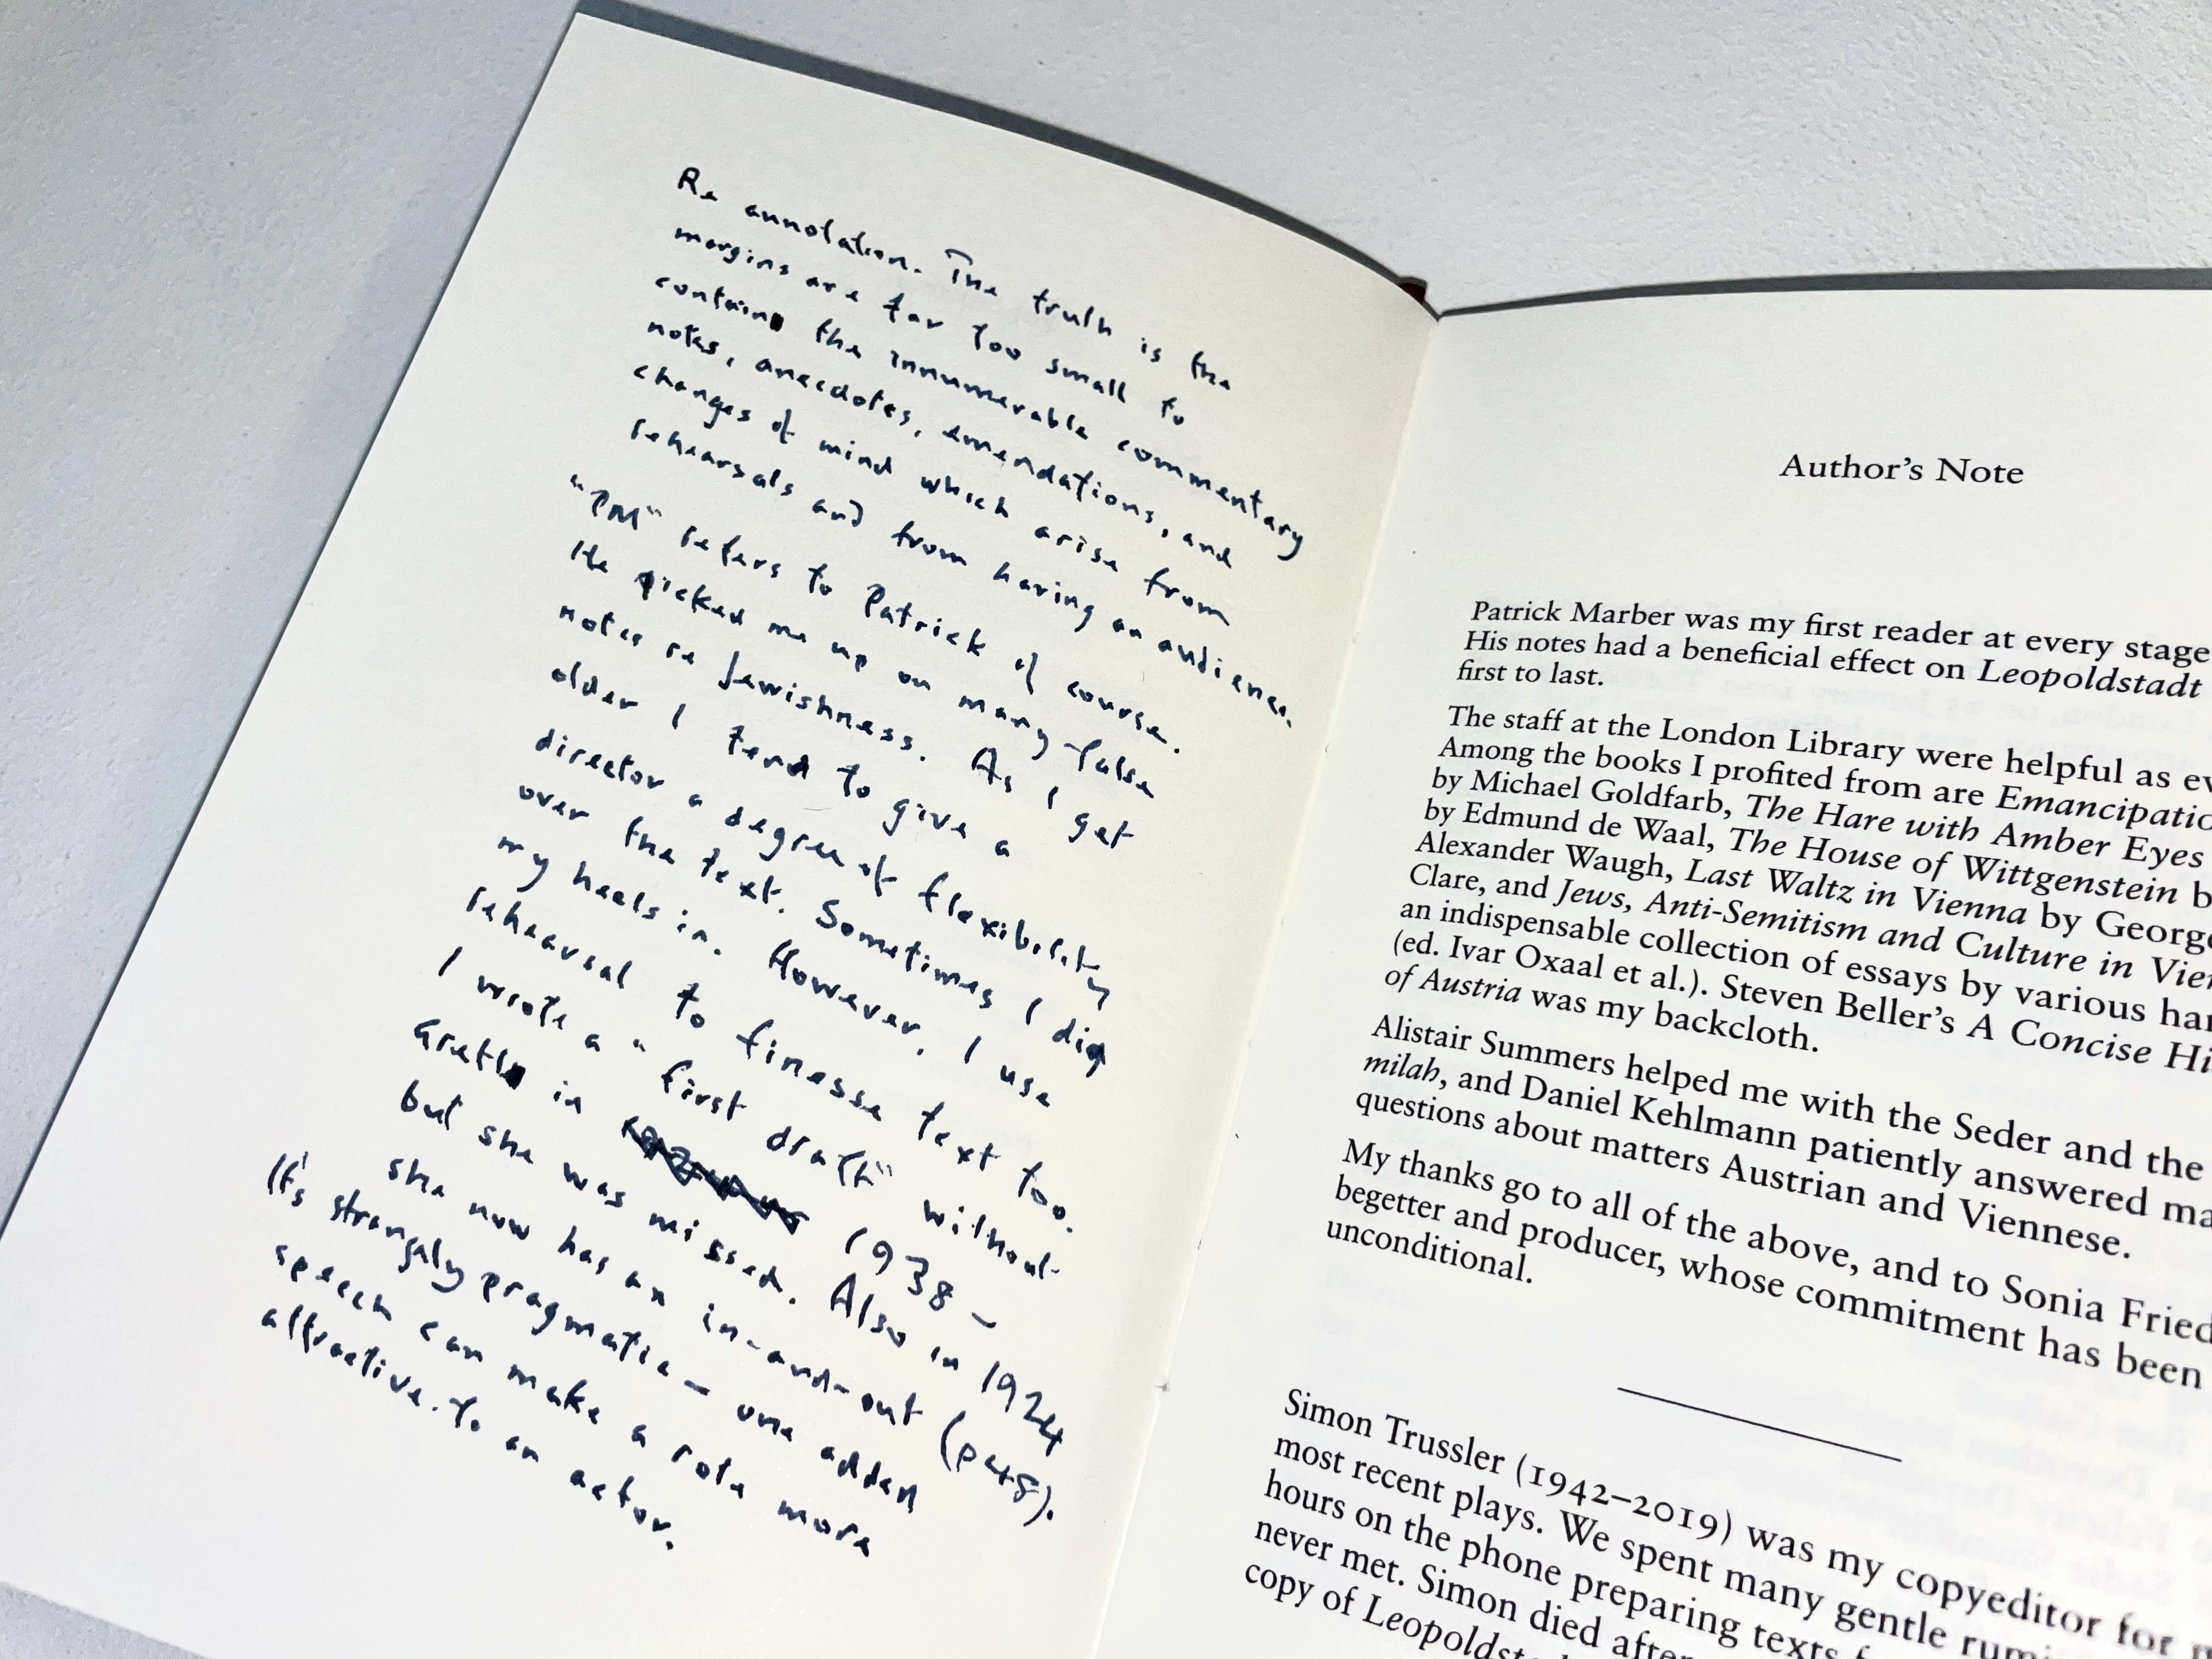 Re annotation. The truth is the
margins are far too small to
contain the innumerable commentary
notes, anecdotes, emendations, and
changes of mind which arise from
rehearsals and from having an audience.
"PM" refers to Patrick of course.
He picked me up on many false
notes re Jewishness. As I get
older I tend to give a
director a degree of flexibility
over the text. Sometimes I dig
my heels in. However, I use
rehearsal to finesse text too.
I wrote a "first draft" without
Gretl in 1938 –
but she was missed. Also in 1924
she now has an in-and-out (p48).
It's strangely pragmatic – one added
speech can make a role more
attractive to an actor.
Author's Note
Patrick Marber was my first reader at every stage
His notes had a beneficial effect on Leopoldstadt
first to last.
The staff at the London Library were helpful as
Among the books I profited from are
by Michael Goldfarb, The Hare with Amber Eyes
by Edmund de Waal, The House of Wittgenstein
Alexander Waugh, Last Waltz in Vienna by
Clare, and Jews, Anti-Semitism and Culture in
an indispensable collection of essays by various
(ed. Ivar Oxaal et al.). Steven Beller's A Concise
of Austria was my backcloth.
Alistair Summers helped me with the Seder and the
milah, and Daniel Kehlmann patiently answered
questions about matters Austrian and Viennese.
My thanks go to all of the above, and to Sonia
begetter and producer, whose commitment has been
unconditional.
Simon Trussler (1942–2019) was my copyeditor for
most recent plays. We spent many gentle
hours on the phone preparing texts
never met. Simon died after
copy of